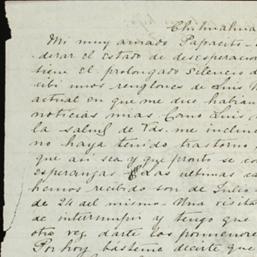 Chihuahua
Mi muy amado Papacito -
derar el estado de desesperacion
tiene el prolongado silencio d
cibi unos renglones de Luis
actual en que me dice habian
noticias mias. Como Luis
la salud de Vds. me inclin
no haya tenido trastorno
que asi sea y que pronto se co
esperanzas. Las ultimas ca
hemos recibido son de Julio
de 24 del mismo. Una visita
de interrumpir y tengo que
otra vez darte los pormenores
Por hoy básteme decirte que